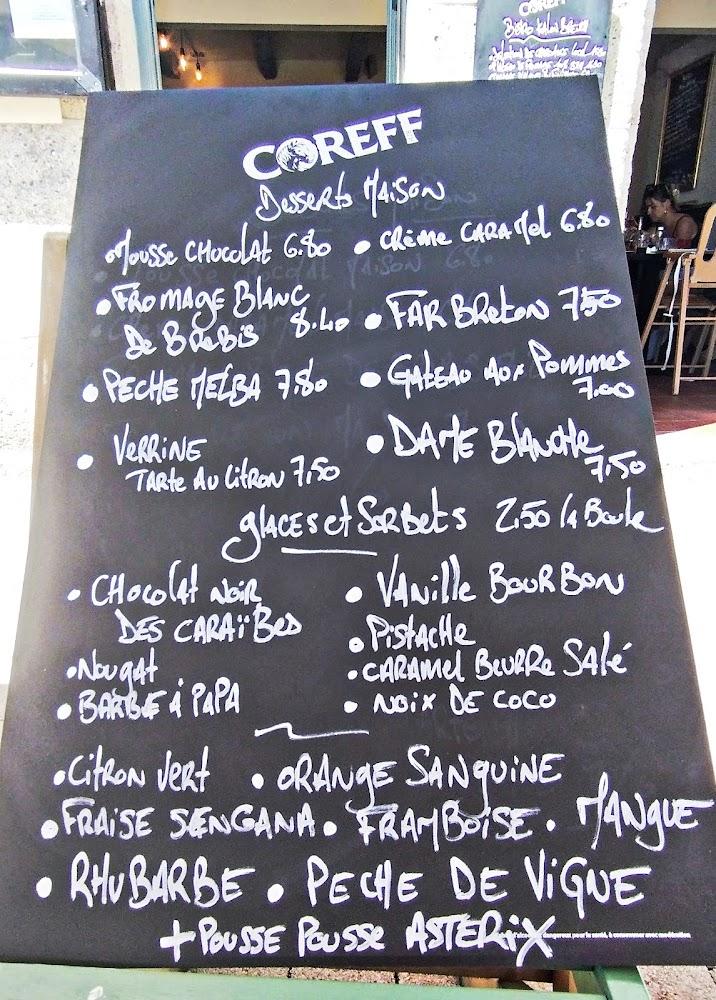 COREFF
COREFF
Desserts Maison
• Mousse CHocolat 6.80
• Crème CARAMel 6.80
• FROMAGE BLANC
De BReBiS 8.40
• FAR BReton 7.50
• PECHE MELBA 7.80
• GATeau aux Pommes
7.00
• VeRRiNe
TARTe Au CitRON 7,50
• DAME BlaNcHe
7.50
glaces et SoRBets 2.50 la Boule
• CHocolat NoiR
DES CARAïBeS
• VANille BOURBON
• PistacHe
• Nougat
• CARAMel BeuRRe Salé
• BARBE à PaPA
• NOiX DE COCO
• CitRon VeRt • ORANge SANguiNE
• FRAiSE SENGANA • FRAMBOiSE • MANgue
• RHuBARBE • PECHE DE ViGNE
+ Pousse Pousse ASTERiX